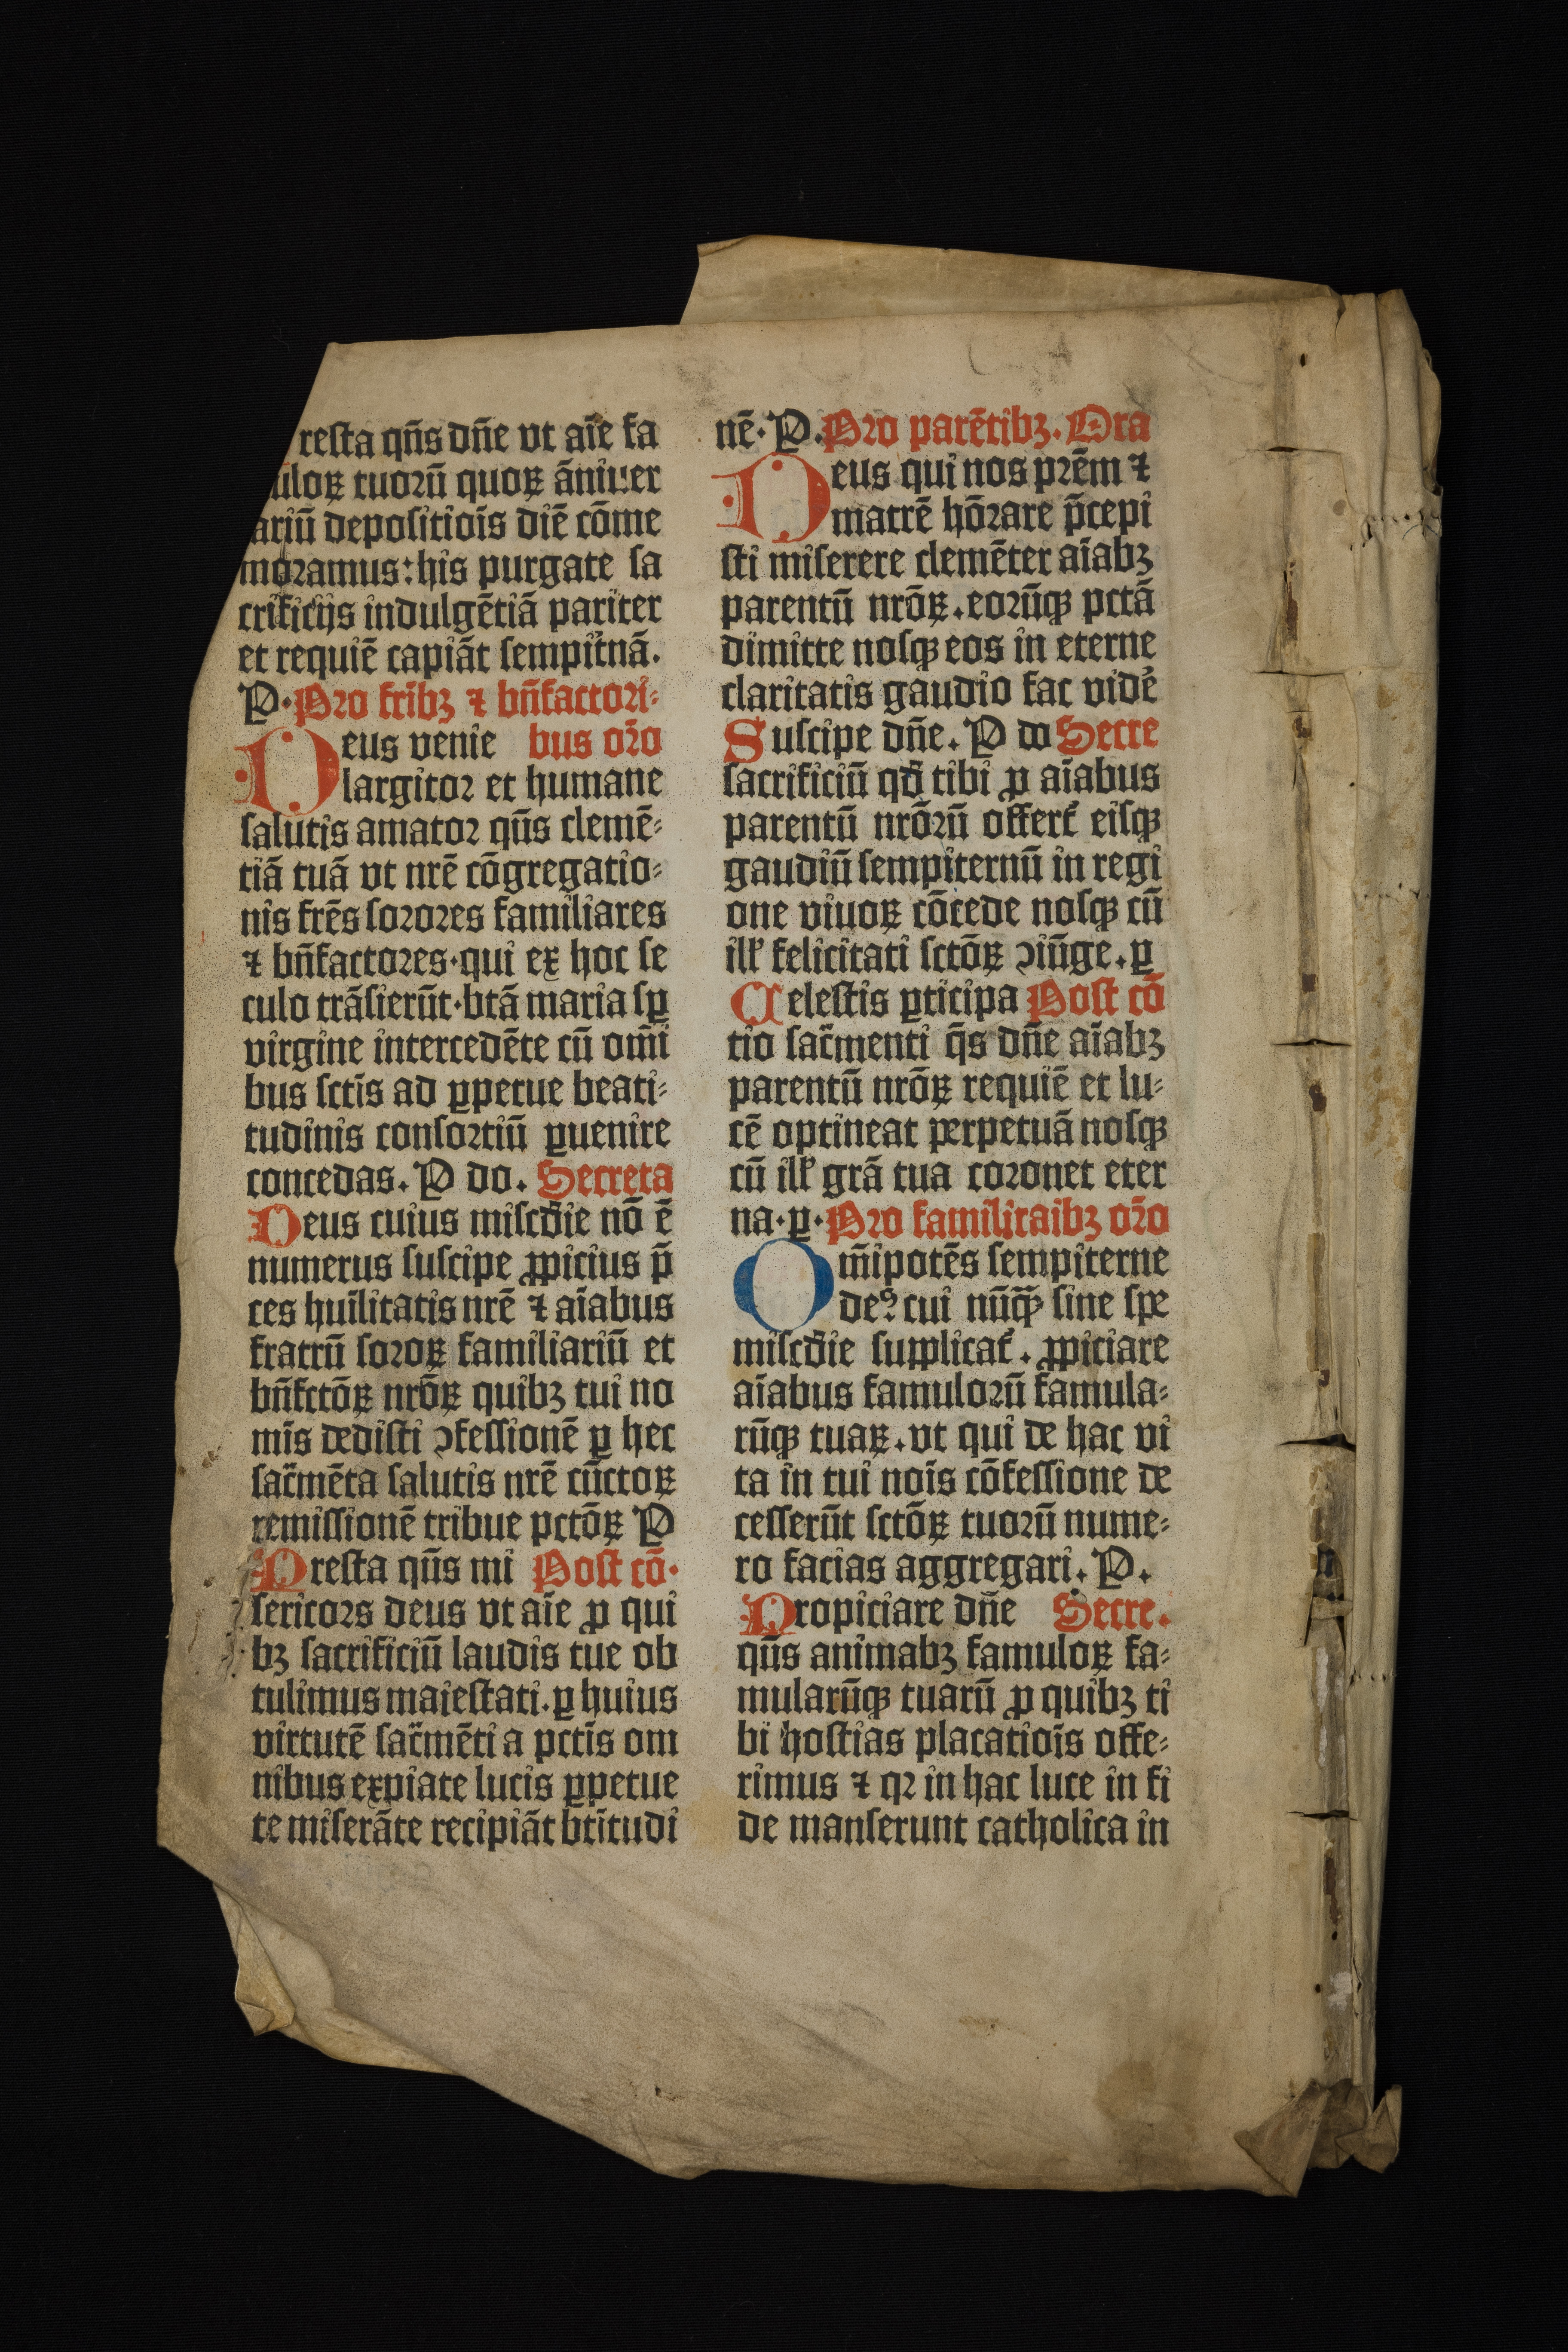 resta qn̄s dn̄e vt aīe fa
ulоꝝ tuorū quoꝝ āniuer
ariū depositiōis diē cōme
moramus: his purgate sa
crificijs indulgētiā pariter
et requiē capiāt sempit̄nā.
P. Pro fribꝫ ⁊ bn̄factori-
Deus venie bus or̄o
largitor et humane
salutis amator qūs clemē-
tiā tuā vt nrē cōgregatio-
nis frēs sorores familiares
⁊ bn̄factores. qui ex hoc se
culo trāsierūt. btā maria sꝑ
virgine intercedēte cū om̄i
bus sctīs ad ꝑpetue beati-
tudinis consortiū ꝑuenire
concedas. P do. Secreta
Deus cuius misc̄die nō ē
numerus suscipe ꝓpicius p̄
ces huīlitatis nrē ⁊ aīabus
fratrū soroꝝ familiariū et
bn̄fctōꝝ nrōꝝ quibꝫ tui no
mīs dedisti ꝯfessionē ꝑ hec
sac̄mēta salutis nrē cūctoꝝ
remissionē tribue pctōꝝ P
Presta qūs mi Post cō.
sericors deus vt aīe ꝓ qui
bꝫ sacrificiū laudis tue ob
tulimus maiestati. ꝑ huius
virtutē sac̄mēti a pctīs om
nibus expiate lucis ꝑpetue
te miserāte recipiāt btītudi
nē. P. Pro parētibꝫ. Ora
Deus qui nos prēm ⁊
matrē hōrare p̄cepi
sti miserere clemēter aīabꝫ
parentū nrōꝝ. eorūqꝫ pctā
dimitte nosqꝫ eos in eterne
claritatis gaudio fac vidē
Suscipe dn̄e. P do Secre
sacrificiū qd̄ tibi ꝓ aīabus
parentū nrōrū offert̄ eisqꝫ
gaudiū sempiternū in regi
one viuoꝝ cōcede nosqꝫ cū
ill̄ felicitati sctōꝝ ꝯiūge. ꝑ
Celestis ꝑticipa Post cō
tio sac̄menti q̄s dn̄e aīabꝫ
parentū nrōꝝ requiē et lu-
cē optineat perpetuā nosqꝫ
cū ill̄ grā tua coronet eter
na. ꝑ. Pro familitaibꝫ or̄o
Om̄ipotēs sempiterne
deꝰ cui nūqꝫ̄ sine spe
misc̄die supplicat̄. ꝓpiciare
aīabus famulorū famula-
rūqꝫ tuaꝝ. vt qui de hac vi
ta in tui noīs cōfessione de
cesserūt sctōꝝ tuorū nume-
ro facias aggregari. P.
Propiciare dn̄e Secre.
qūs animabꝫ famuloꝝ fa-
mularūqꝫ tuarū ꝓ quibꝫ ti
bi hostias placatiōis offe-
rimus ⁊ qꝛ in hac luce in fi
de manserunt catholica in